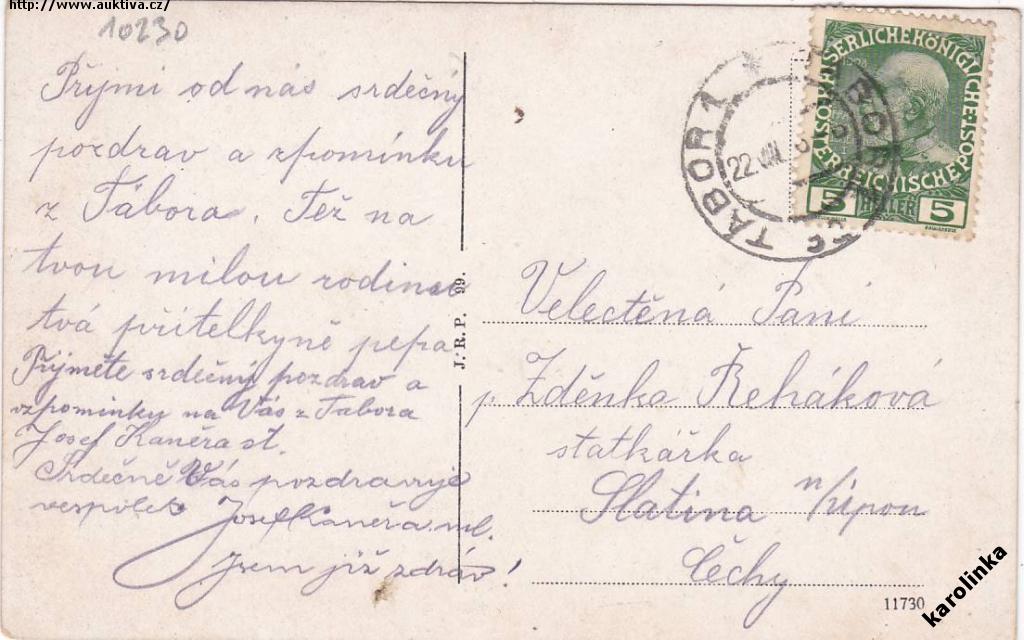 http://www.auktiva.cz/
10230
Přijmi od nás srdečný
pozdrav a zpomínku
z Tábora. Též na
tvou milou rodinu
tvá přítelkyně pepa
Přijměte srdečný pozdrav a
vzpomínky na Vás z Tabora
Josef Kaněra st.
Srdečně Vás pozdravuje
vespolek Josef Kaněra ml.
Jsem již zdráv!
J. R. P. 99.
TÁBOR 1
22.VIII
KAISERLICHE KÖNIGLICHE POST
ÖSTERREICHISCHE
5 HELLER 5
Velectěná Paní
p. Zděnka Řeháková
statkářka
Slatina n/Úpou
Čechy
11730
karolinka